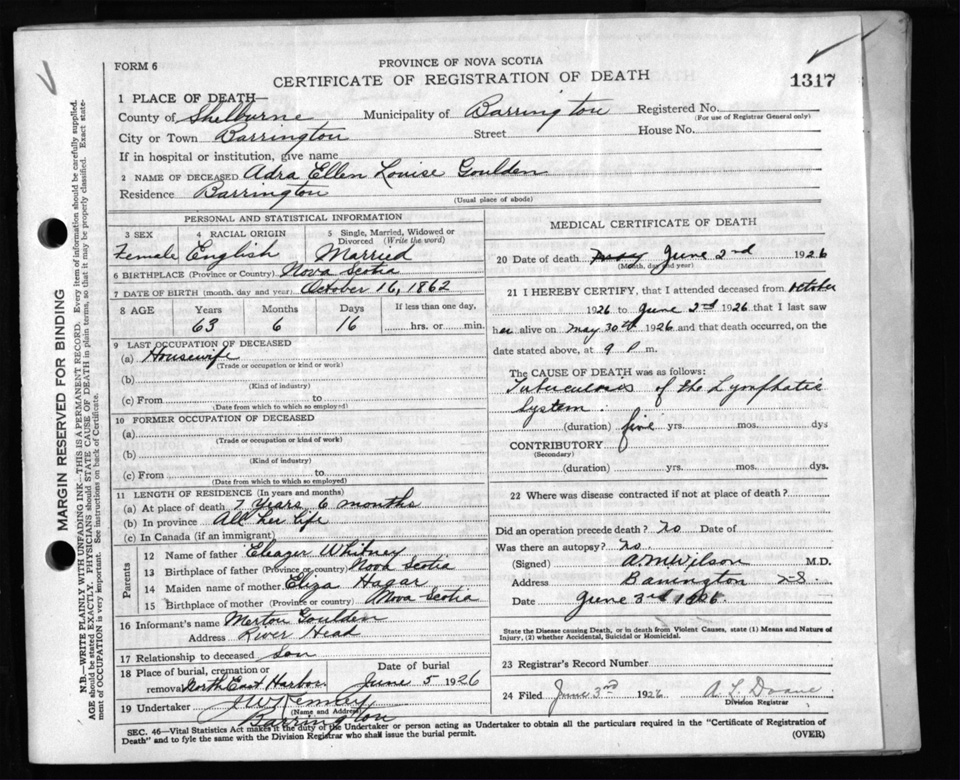 FORM 6
PROVINCE OF NOVA SCOTIA
CERTIFICATE OF REGISTRATION OF DEATH
1317
1 PLACE OF DEATH—
County of Shelburne Municipality of Barrington Registered No.
(For use of Registrar General only)
City or Town Barrington Street House No.
If in hospital or institution, give name
2 NAME OF DECEASED Adra Ellen Louise Goulden
Residence Barrington
(Usual place of abode)
PERSONAL AND STATISTICAL INFORMATION
3 SEX 4 RACIAL ORIGIN 5 Single, Married, Widowed or Divorced (Write the word)
Female English Married
6 BIRTHPLACE (Province or Country) Nova Scotia
7 DATE OF BIRTH (month, day and year) October 16, 1862
8 AGE Years Months Days If less than one day,
63 6 16 hrs. or min.
9 LAST OCCUPATION OF DECEASED
(a) Housewife
(Trade or occupation or kind or work)
(b)
(Kind of industry)
(c) From to
(Date from which to which so employed)
10 FORMER OCCUPATION OF DECEASED
(a)
(Trade or occupation or kind of work)
(b)
(Kind of industry)
(c) From to
(Date from which to which so employed)
11 LENGTH OF RESIDENCE (In years and months)
(a) At place of death 7 Years 6 months
(b) In province All her life
(c) In Canada (if an immigrant)
Parents
12 Name of father Eleazer Whitney
13 Birthplace of father (Province or country) Nova Scotia
14 Maiden name of mother Eliza Hagar
15 Birthplace of mother (Province or country) Nova Scotia
16 Informant's name Merton Goulden
Address River Head
17 Relationship to deceased Son
18 Place of burial, cremation or removal North East Harbor Date of burial June 5 1926
19 Undertaker
(Name and Address)
Barrington
MEDICAL CERTIFICATE OF DEATH
20 Date of death May June 2nd 1926
(Month, day and year)
21 I HEREBY CERTIFY, that I attended deceased from October
1926 to June 2nd 1926 that I last saw
her alive on May 30th 1926 and that death occurred, on the
date stated above, at 9 P m.
The CAUSE OF DEATH was as follows:
Tuberculosis of the Lymphatic
System.
(duration) five yrs. mos. dys
CONTRIBUTORY
(Secondary)
(duration) yrs. mos. dys.
22 Where was disease contracted if not at place of death?
Did an operation precede death? No Date of
Was there an autopsy? No
(Signed) A M Wilson M.D.
Address Barrington
Date June 3rd 1926.
State the Disease causing Death, or in death from Violent Causes, state (1) Means and Nature of
Injury, (2) whether Accidental, Suicidal or Homicidal.
23 Registrar's Record Number
24 Filed June 3rd 1926 A L Doane
Division Registrar
SEC. 46—Vital Statistics Act makes it the duty of the Undertaker or person acting as Undertaker to obtain all the particulars required in the "Certificate of Registration of
Death" and to fyle the same with the Division Registrar who shall issue the burial permit. (OVER)
MARGIN RESERVED FOR BINDING
N.B.—WRITE PLAINLY WITH UNFADING INK—THIS IS A PERMANENT RECORD. Every item of information should be carefully supplied.
AGE should be stated EXACTLY. PHYSICIANS should STATE CAUSE OF DEATH in plain terms, so that it may be properly classified. Exact state-
ment of OCCUPATION is very important. See instructions on back of Certificate.